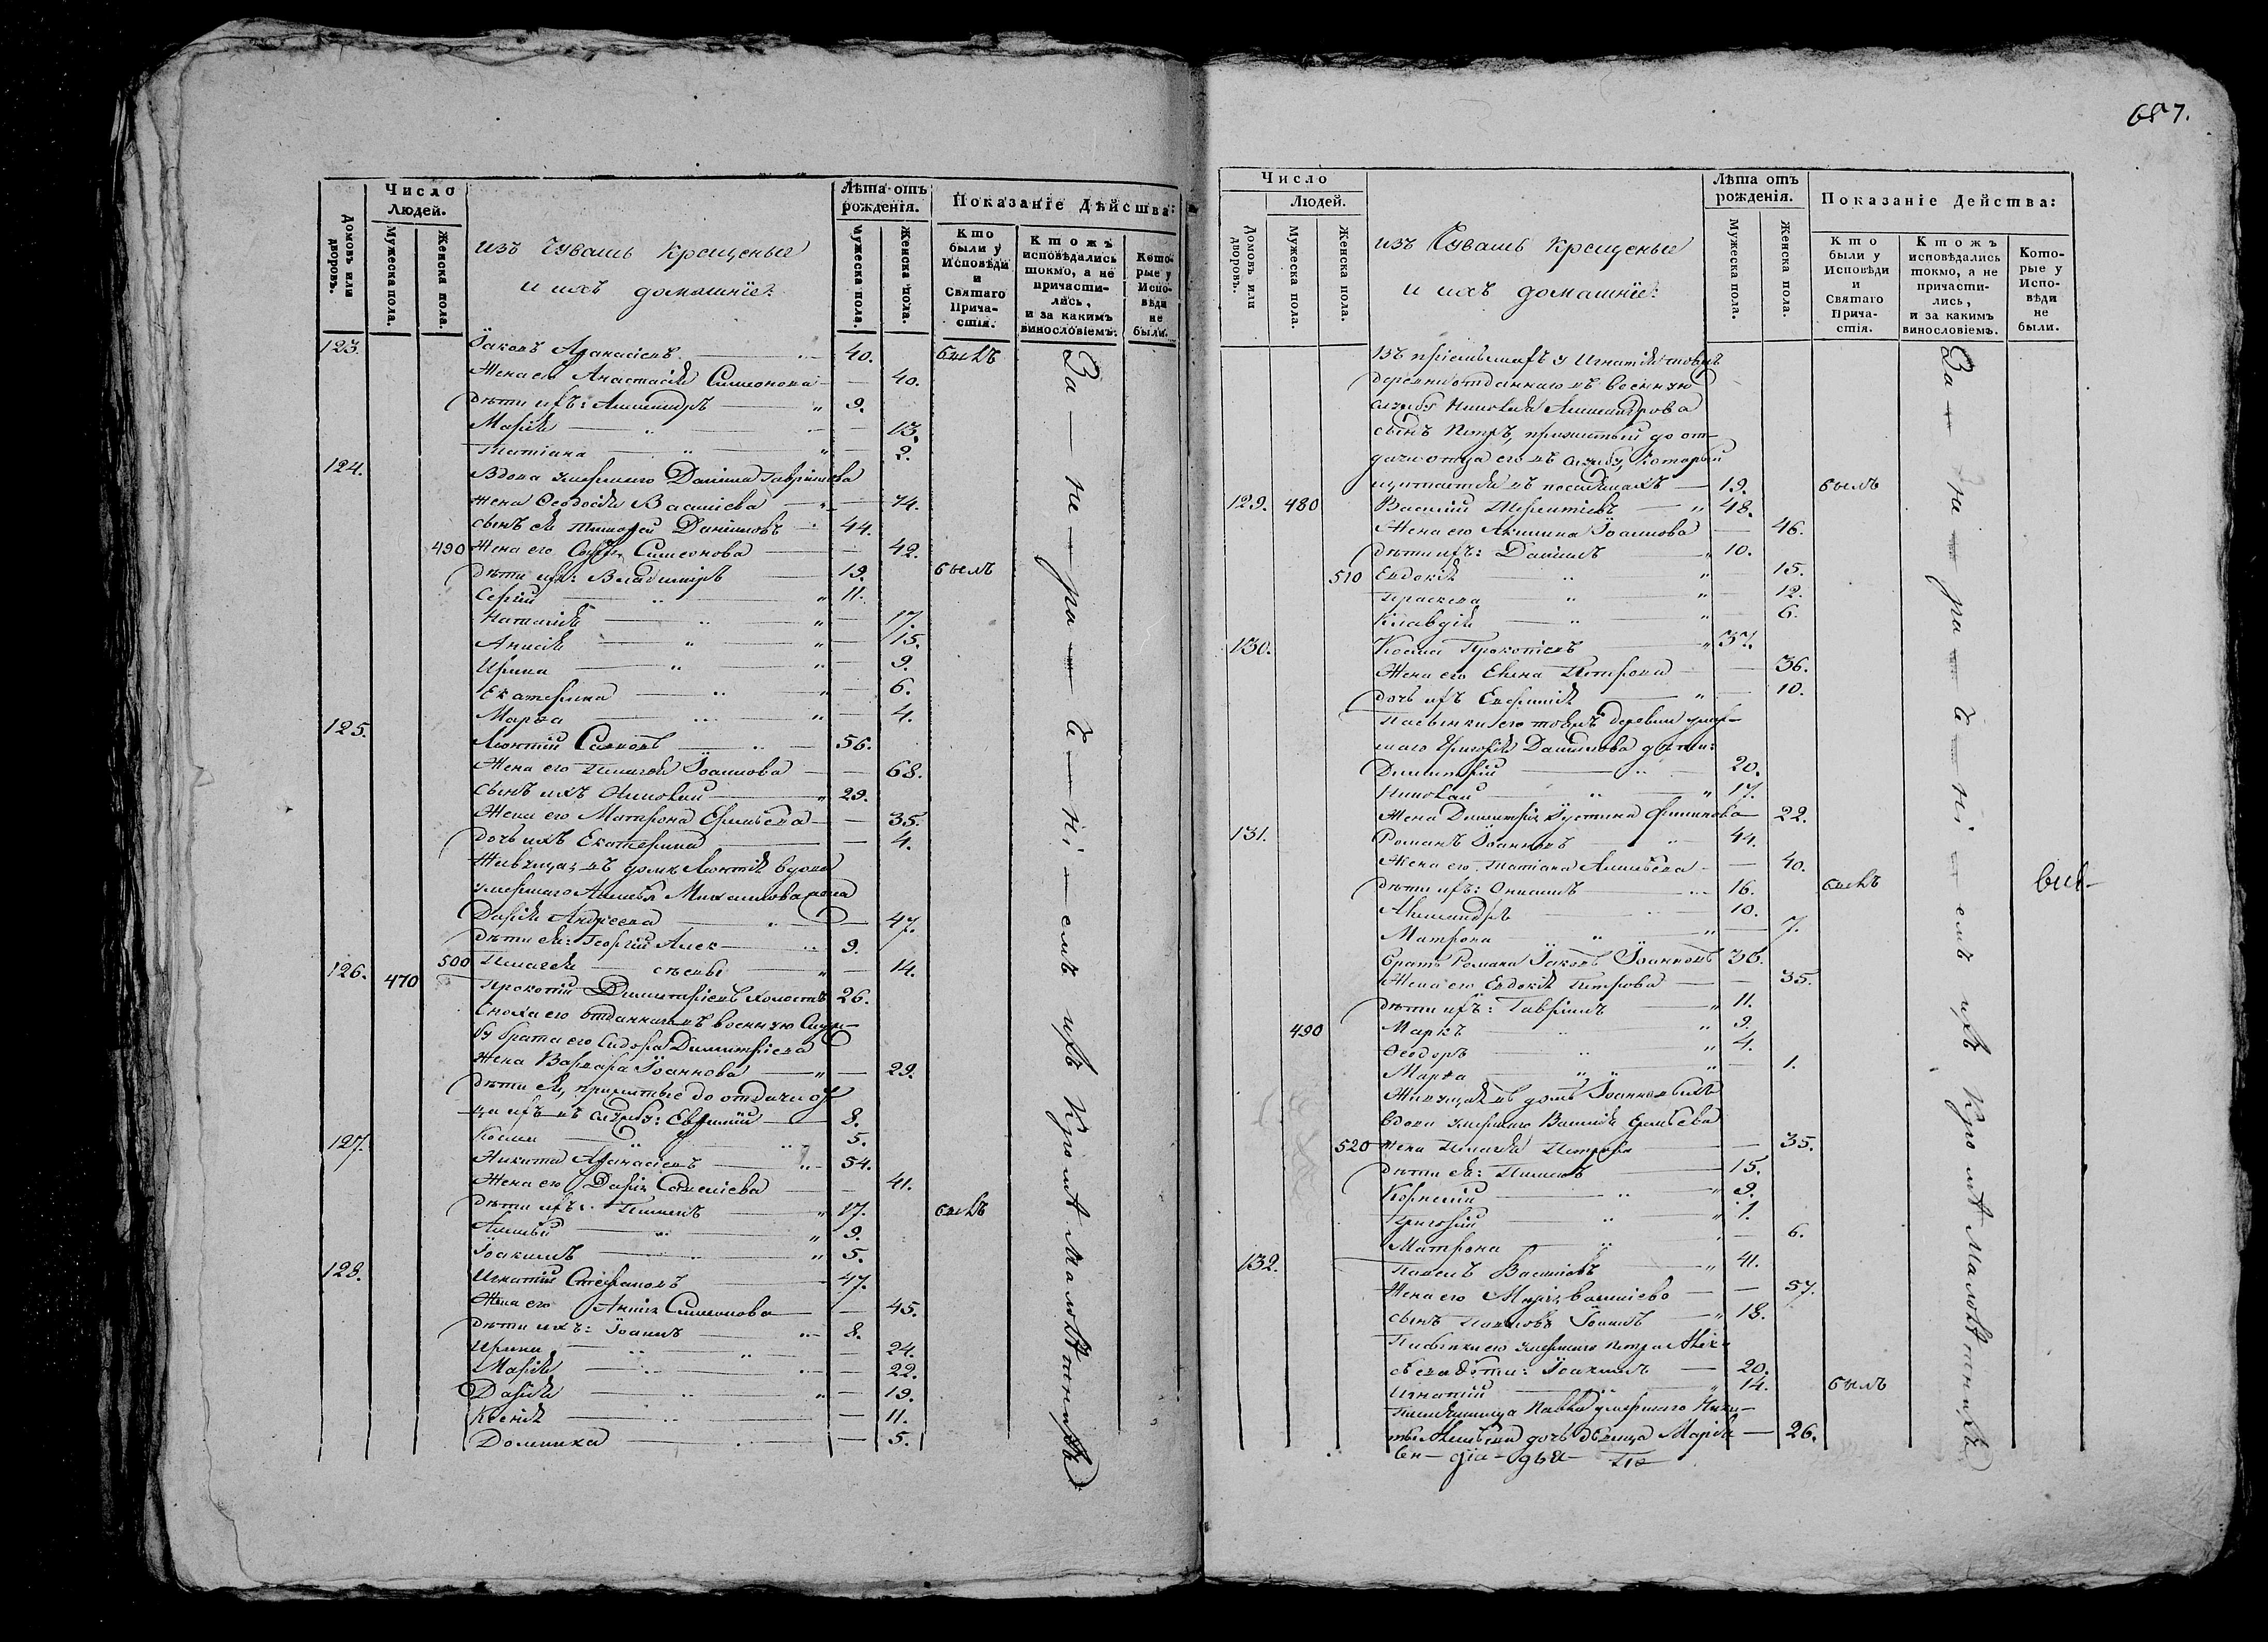 Число
Людей.
Домовъ или дворовъ.
Мужеска пола.
Женска пола.
изъ Чувашъ крещеные
и ихъ домашніе:
Лѣта отъ
рожденія.
Мужеска пола.
Женска пола.
Показаніе Дѣйства:
Кто
были у
Исповѣди
и
Святаго
Прича-
стія.
Ктожъ
исповѣдались
токмо, а не
причасти-
лись,
и за какимъ
винословіемъ.
Кото-
рые у
Испо-
вѣди
не
были.
123. Іаковъ Аѳанасіевъ 40. былъ
Жена его Анастасія Симеонова 40.
дѣти ихъ: Александръ 9.
Марія 13.
Татіана 2.
124. Вдова умершаго Даніила Гавриилова
жена Ѳеодосія Василіева 74.
сынъ ея Тимоѳей Даніиловъ 44.
490 Жена его Симеонова 42.
дѣти ихъ: Владимиръ 19. былъ
Сергій 11.
Наталія 17.
Анисія 15.
Ирина 9.
Екатерина 6.
Марѳа 4.
125. Леонтій 56.
Жена его Пелагея Іоаннова 68.
сынъ ихъ Николай 29.
Жена его Матрона 35.
дочь ихъ Екатерина 4.
Живущая въ домѣ Леонтія вдова
умершаго Алексѣя Михаилова жена
Дарія Андреева 47.
дѣти ея: Георгій Алек- 9.
500 Пелагея сѣевы 14.
126. 470 Прокопій Димитріевъ холостъ 26.
Сноха его отданнаго въ военную служ-
бу брата его Сидора Димитріева
жена Варвара Іоаннова 29.
дѣти ея, прижитые до отдачи от-
ца ихъ въ службу: Евѳимій 8.
Косма 5.
127. Никита Аѳанасіевъ 54.
Жена его Дарія Савеліева 41.
дѣти ихъ: Пименъ 17. былъ
Алексѣй 9.
Іоакимъ 5.
128. Игнатій Стефановъ 47.
Жена его Анна Симеонова 45.
дѣти ихъ: Іоаннъ 8.
Ирина 24.
Марія 22.
Дарія 19.
Ксенія 11.
Домника 5.
За — не — ра — дѣ — ні — емъ ихъ Кромѣ малолѣтнихъ
687.
Число
Людей.
Домовъ или дворовъ.
Мужеска пола.
Женска пола.
изъ Чувашъ крещеные
и ихъ домашніе:
Лѣта отъ
рожденія.
Мужеска пола.
Женска пола.
Показаніе Действа:
Кто
были у
Исповѣди
и
Святаго
Прича-
стія.
Ктожъ
исповѣдались
токмо, а не
причасти-
лись,
и за какимъ
винословіемъ.
Кото-
рые у
Испо-
вѣди
не
были.
Въ пріемышахъ у Игнатія тояжъ
деревни отданнаго въ военную
службу Николая Александрова
сынъ Петръ, прижитый до от-
дачи отца его въ службу, который
щитается въ посемьяхъ 19. былъ
129. 480 Василій Терентіевъ 48.
Жена его Акилина Іоаннова 46.
дѣти ихъ: Даніилъ 10.
510 Евдокія 15.
Параскева 12.
Клавдія 6.
130. Косма Прокопіевъ 37.
Жена его Елена Петрова 36.
дочь ихъ 10.
Пасынки его тояжъ деревни умер-
шаго Григорія Даниилова дѣти:
Димитрій 20.
Николай 17.
Жена Димитрія Іустина Филиппова 22.
131. Романъ Іоанновъ 44.
Жена его Татіана Алексѣева 40.
дѣти ихъ: 16. былъ
Александръ 10.
Матрона 7.
братъ Романа Іаковъ Іоанновъ 36.
Жена его Евдокія Петрова 35.
дѣти ихъ: Гавріилъ 11.
490 Маркъ 9.
Ѳеодоръ 4.
Марѳа 1.
Живущая въ домѣ Іоанновыхъ
вдова умершаго Василія
520 жена Пелагея Петрова 35.
дѣти ея: Пименъ 15.
Корнилій 9.
Григорій 1.
Матрона 6.
132. Павелъ Василіевъ 41.
Жена его Марія Василіева 57.
сынъ Павловъ Іоаннъ 18.
Пасынки его умершаго Петра Алек-
сѣева дѣти: Іоакимъ 20.
Игнатій 14. былъ
Племянница Павла умершаго Ники-
ты Алексѣева дочь дѣвица Марія 26.
За — не — ра — дѣ — ні — емъ ихъ Кромѣ малолѣтнихъ